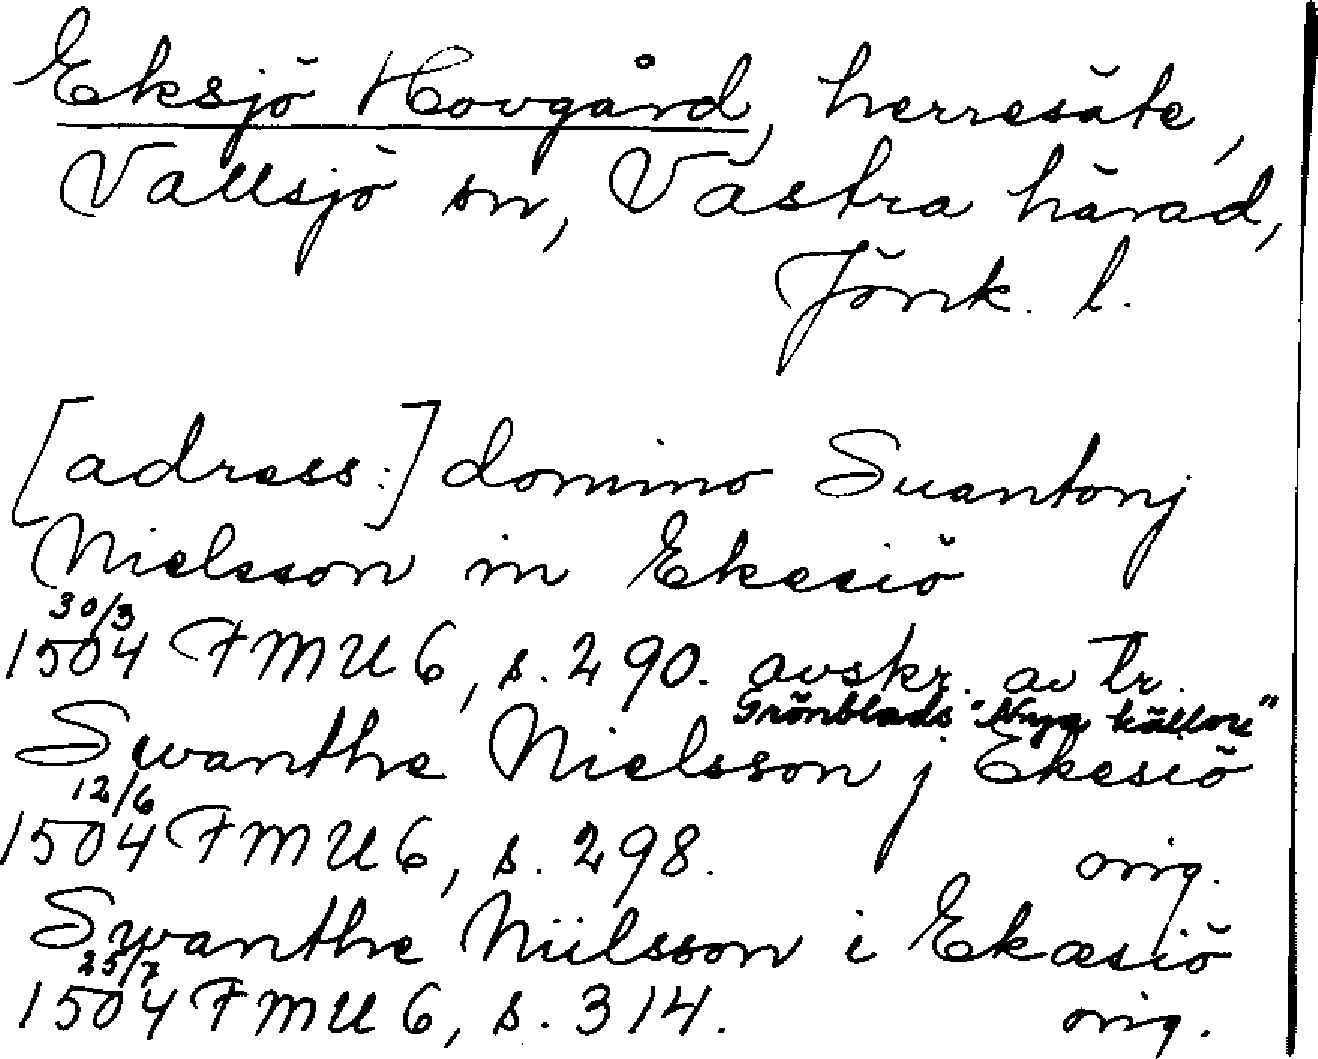 Eksjö Hovgård, herresäte,
Vallsjö sn, Västra härad,
Jönk. l.
[adress:] domino Suantonj
Nielsson in Ekesiö
30/3
1504 FMU 6, s. 290. avskr. av tr.
Grönblads "Nya källor"
Swanthe Nielsson j Ekesiö
12/6
1504 FMU 6, s. 298. orig.
Swanthe Niilsson i Ekæsiö
25/7
1504 FMU 6, s. 314. orig.